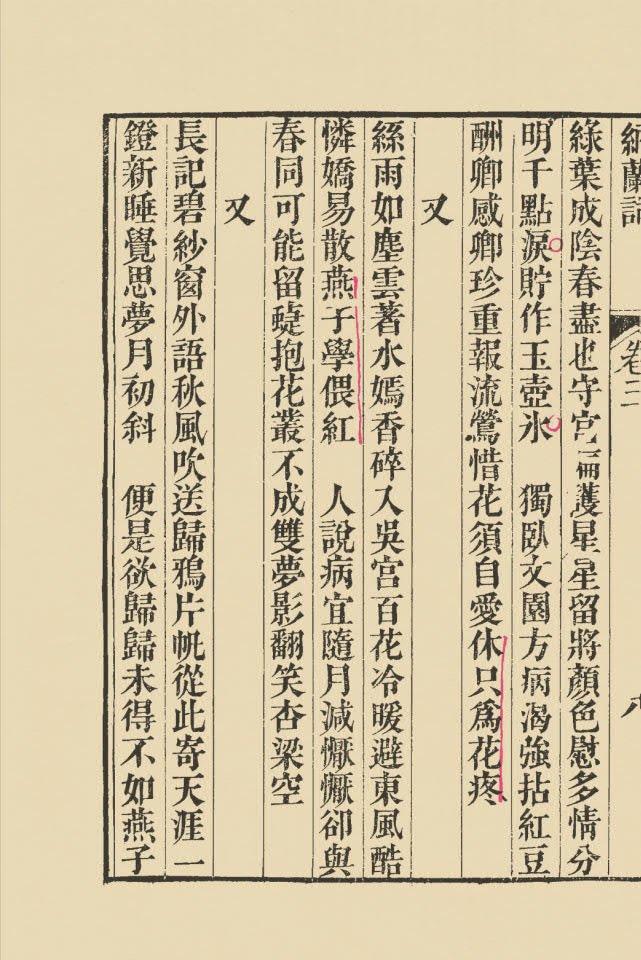 卷三
綠葉成陰春盡也守宮偏護星星留將顏色慰多情分
明千點淚貯作玉壺冰　獨臥文園方病渴強拈紅豆
酬卿感卿珍重報流鶯惜花須自愛休只爲花疼
又
絲雨如塵雲著水嫣香碎入吳宮百花冷暖避東風酷
憐嬌易散燕子學偎紅　人說病宜隨月減懨懨卻與
春同可能留蜨抱花叢不成雙夢影翻笑杏梁空
又
長記碧紗窗外語秋風吹送歸鴉片帆從此寄天涯一
鐙新睡覺思夢月初斜　便是欲歸歸未得不如燕子